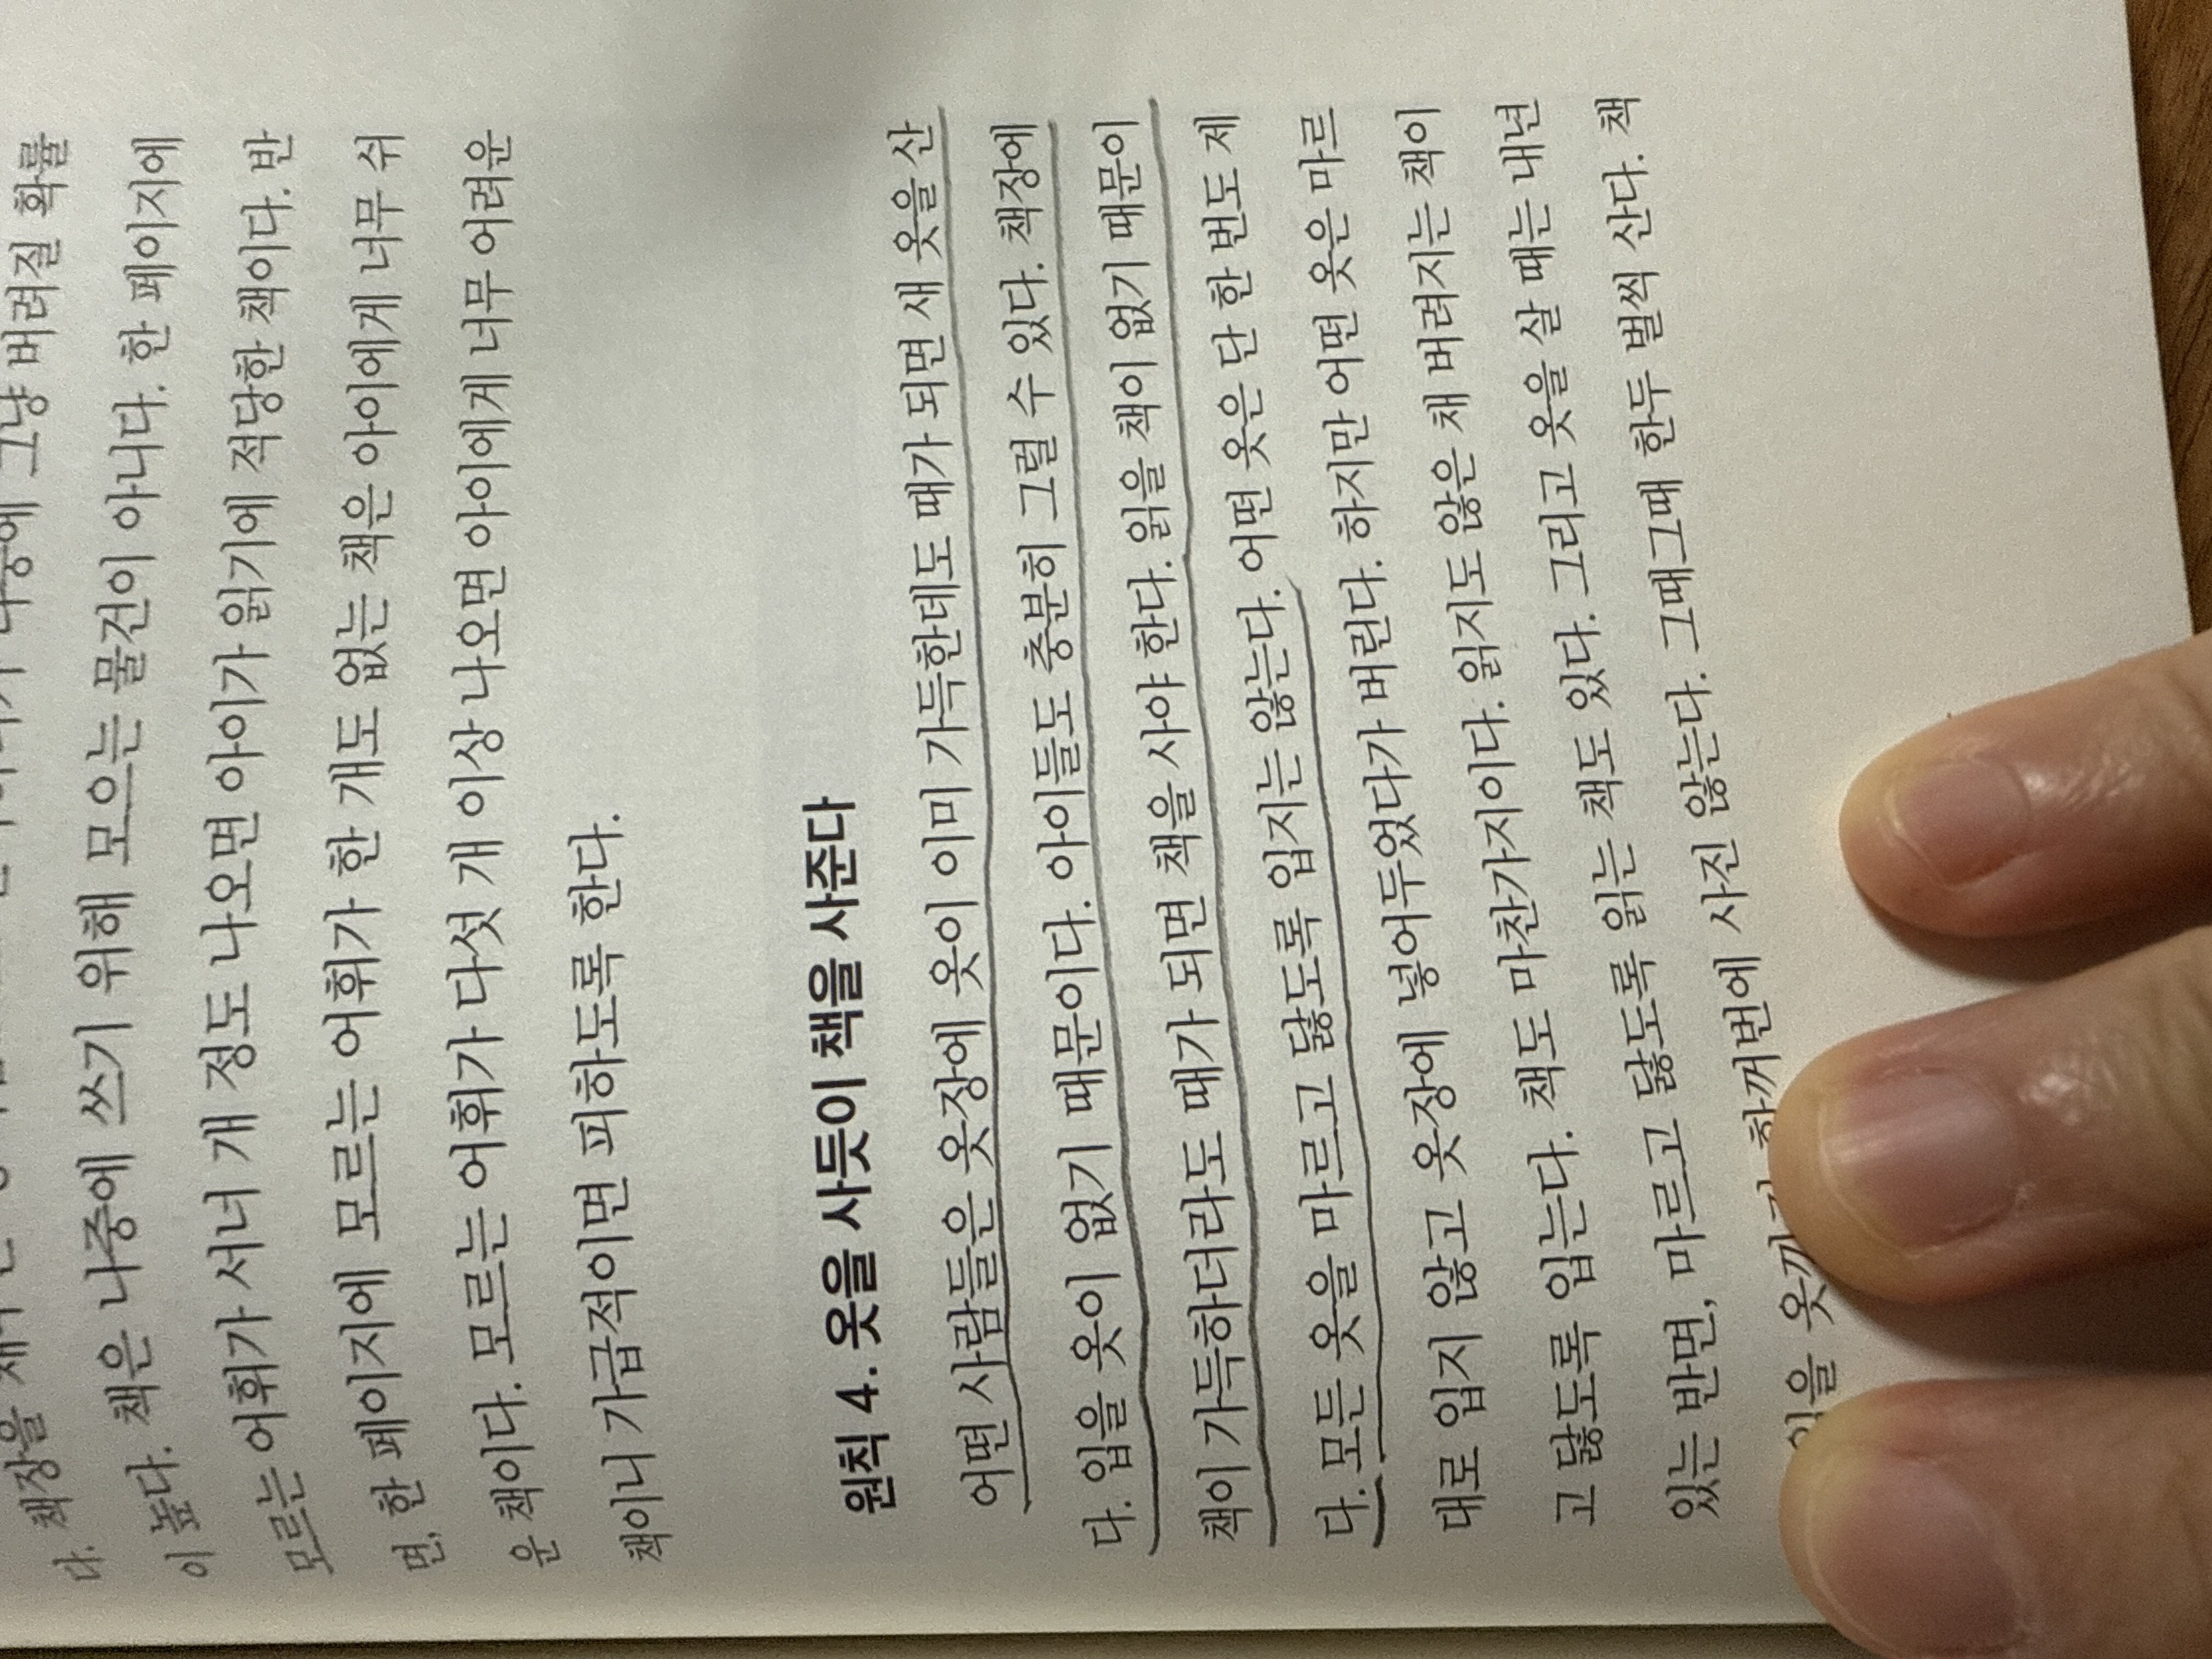 다. 책장을
그냥 버려질 확률
이 높다. 책은 나중에 쓰기 위해 모으는 물건이 아니다. 한 페이지에
모르는 어휘가 서너 개 정도 나오면 아이가 읽기에 적당한 책이다. 반
면, 한 페이지에 모르는 어휘가 한 개도 없는 책은 아이에게 너무 쉬
운 책이다. 모르는 어휘가 다섯 개 이상 나오면 아이에게 너무 어려운
책이니 가급적이면 피하도록 한다.
원칙 4. 옷을 사듯이 책을 사준다
어떤 사람들은 옷장에 옷이 이미 가득한데도 때가 되면 새 옷을 산
다. 입을 옷이 없기 때문이다. 아이들도 충분히 그럴 수 있다. 책장에
책이 가득하더라도 때가 되면 책을 사야 한다. 읽을 책이 없기 때문이
다. 모든 옷을 마르고 닳도록 입지는 않는다. 어떤 옷은 단 한 번도 제
대로 입지 않고 옷장에 넣어두었다가 버린다. 하지만 어떤 옷은 마르
고 닳도록 입는다. 책도 마찬가지이다. 읽지도 않은 채 버려지는 책이
있는 반면, 마르고 닳도록 읽는 책도 있다. 그리고 옷을 살 때는 내년
한꺼번에 사진 않는다. 그때그때 한두 벌씩 산다. 책